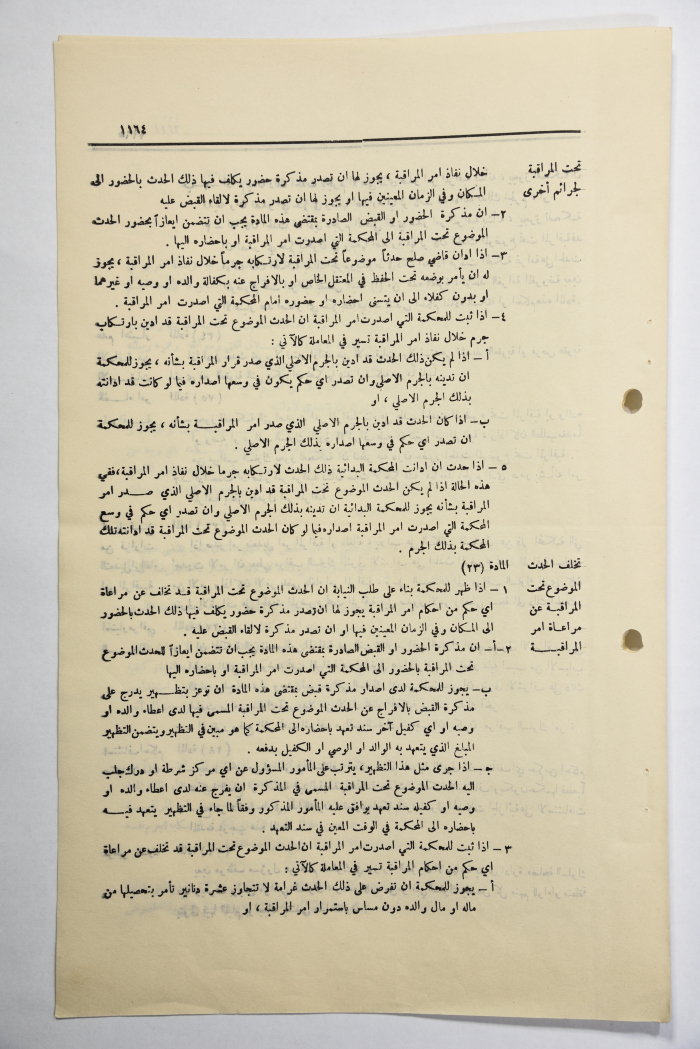 ١١٦٤
تحت المراقبة
لجرائم أخرى
خلال نفاذ امر المراقبة ، يجوز لها ان تصدر مذكرة حضور يكلف فيها ذلك الحدث بالحضور الى
المكان وفي الزمان المعينين فيها او يجوز لها ان تصدر مذكرة لالقاء القبض عليه
٢ – ان مذكرة الحضور او القبض الصادرة بمقتضى هذه المادة يجب ان تتضمن ايعازاً بحضور الحدث
الموضوع تحت المراقبة الى المحكمة التي اصدرت امر المراقبة او باحضاره اليها .
٣ – اذا ادان قاضي صلح حدثاً موضوعاً تحت المراقبة لارتكابه جرماً خلال نفاذ امر المراقبة ، يجوز
له ان يأمر بوضعه تحت الحفظ في المعتقل الخاص او بالافراج عنه بكفالة والده او وصيه او غيرهما
او بدون كفلاء الى ان يتسنى احضاره او حضوره امام المحكمة التي اصدرت امر المراقبة .
٤ – اذا ثبت للمحكمة التي اصدرت امر المراقبة ان الحدث الموضوع تحت المراقبة قد ادين بارتكاب
جرم خلال نفاذ امر المراقبة تسير في المعاملة كالآتي :
أ – اذا لم يكن ذلك الحدث قد ادين بالجرم الاصلي الذي صدر قرار المراقبة بشأنه ، يجوز للمحكمة
ان تدينه بالجرم الاصلي وان تصدر اي حكم يكون في وسعها اصداره فيما لو كانت قد ادانته
بذلك الجرم الاصلي ، او
ب – اذا كان الحدث قد ادين بالجرم الاصلي الذي صدر امر المراقبة بشأنه ، يجوز للمحكمة
ان تصدر اي حكم في وسعها اصداره بذلك الجرم الاصلي .
٥ – اذا حدث ان ادانت المحكمة البدائية ذلك الحدث لارتكابه جرما خلال نفاذ امر المراقبة ، ففي
هذه الحالة اذا لم يكن الحدث الموضوع تحت المراقبة قد ادين بالجرم الاصلي الذي صدر امر
المراقبة بشأنه يجوز للمحكمة البدائية ان تدينه بذلك الجرم الاصلي وان تصدر اي حكم في وسع
المحكمة التي اصدرت امر المراقبة اصداره فيما لو كان الحدث الموضوع تحت المراقبة قد ادانته تلك
المحكمة بذلك الجرم .
تخلف الحدث
الموضوع تحت
المراقبة عن
مراعاة امر
المراقبة
المادة (٢٣)
١ – اذا ظهر للمحكمة بناء على طلب النيابة ان الحدث الموضوع تحت المراقبة قد تخلف عن مراعاة
اي حكم من احكام امر المراقبة يجوز لها ان تصدر مذكرة حضور يكلف فيها ذلك الحدث بالحضور
الى المكان وفي الزمان المعينين فيها او ان تصدر مذكرة لالقاء القبض عليه .
٢ – أ – ان مذكرة الحضور او القبض الصادرة بمقتضى هذه المادة يجب ان تتضمن ايعازاً للحدث الموضوع
تحت المراقبة بالحضور الى المحكمة التي اصدرت امر المراقبة او باحضاره اليها
ب – يجوز للمحكمة لدى اصدار مذكرة قبض بمقتضى هذه المادة ان توعز بتظهير يدرج على
مذكرة القبض بالافراج عن الحدث الموضوع تحت المراقبة المسمى فيها لدى اعطاء والده او
وصيه او اي كفيل آخر سند تعهد باحضاره الى المحكمة كما هو مبين في التظهير ويتضمن التظهير
المبلغ الذي يتعهد به الوالد او الوصي او الكفيل بدفعه .
جـ – اذا جرى مثل هذا التظهير، يترتب على المأمور المسؤول عن اي مركز شرطة او درك جلب
اليه الحدث الموضوع تحت المراقبة المسمى في المذكرة ان يفرج عنه لدى اعطاء والده او
وصيه او كفيله سند تعهد يوافق عليه المأمور المذكور وفقاً لما جاء في التظهير يتعهد فيه
باحضاره الى المحكمة في الوقت المعين في سند التعهد .
٣ – اذا ثبت للمحكمة التي اصدرت امر المراقبة ان الحدث الموضوع تحت المراقبة قد تخلف عن مراعاة
اي حكم من احكام المراقبة تسير في المعاملة كالآتي :
أ – يجوز للمحكمة ان تفرض على ذلك الحدث غرامة لا تتجاوز عشرة دنانير تأمر بتحصيلها من
ماله او مال والده دون مساس باستمرار امر المراقبة ، او